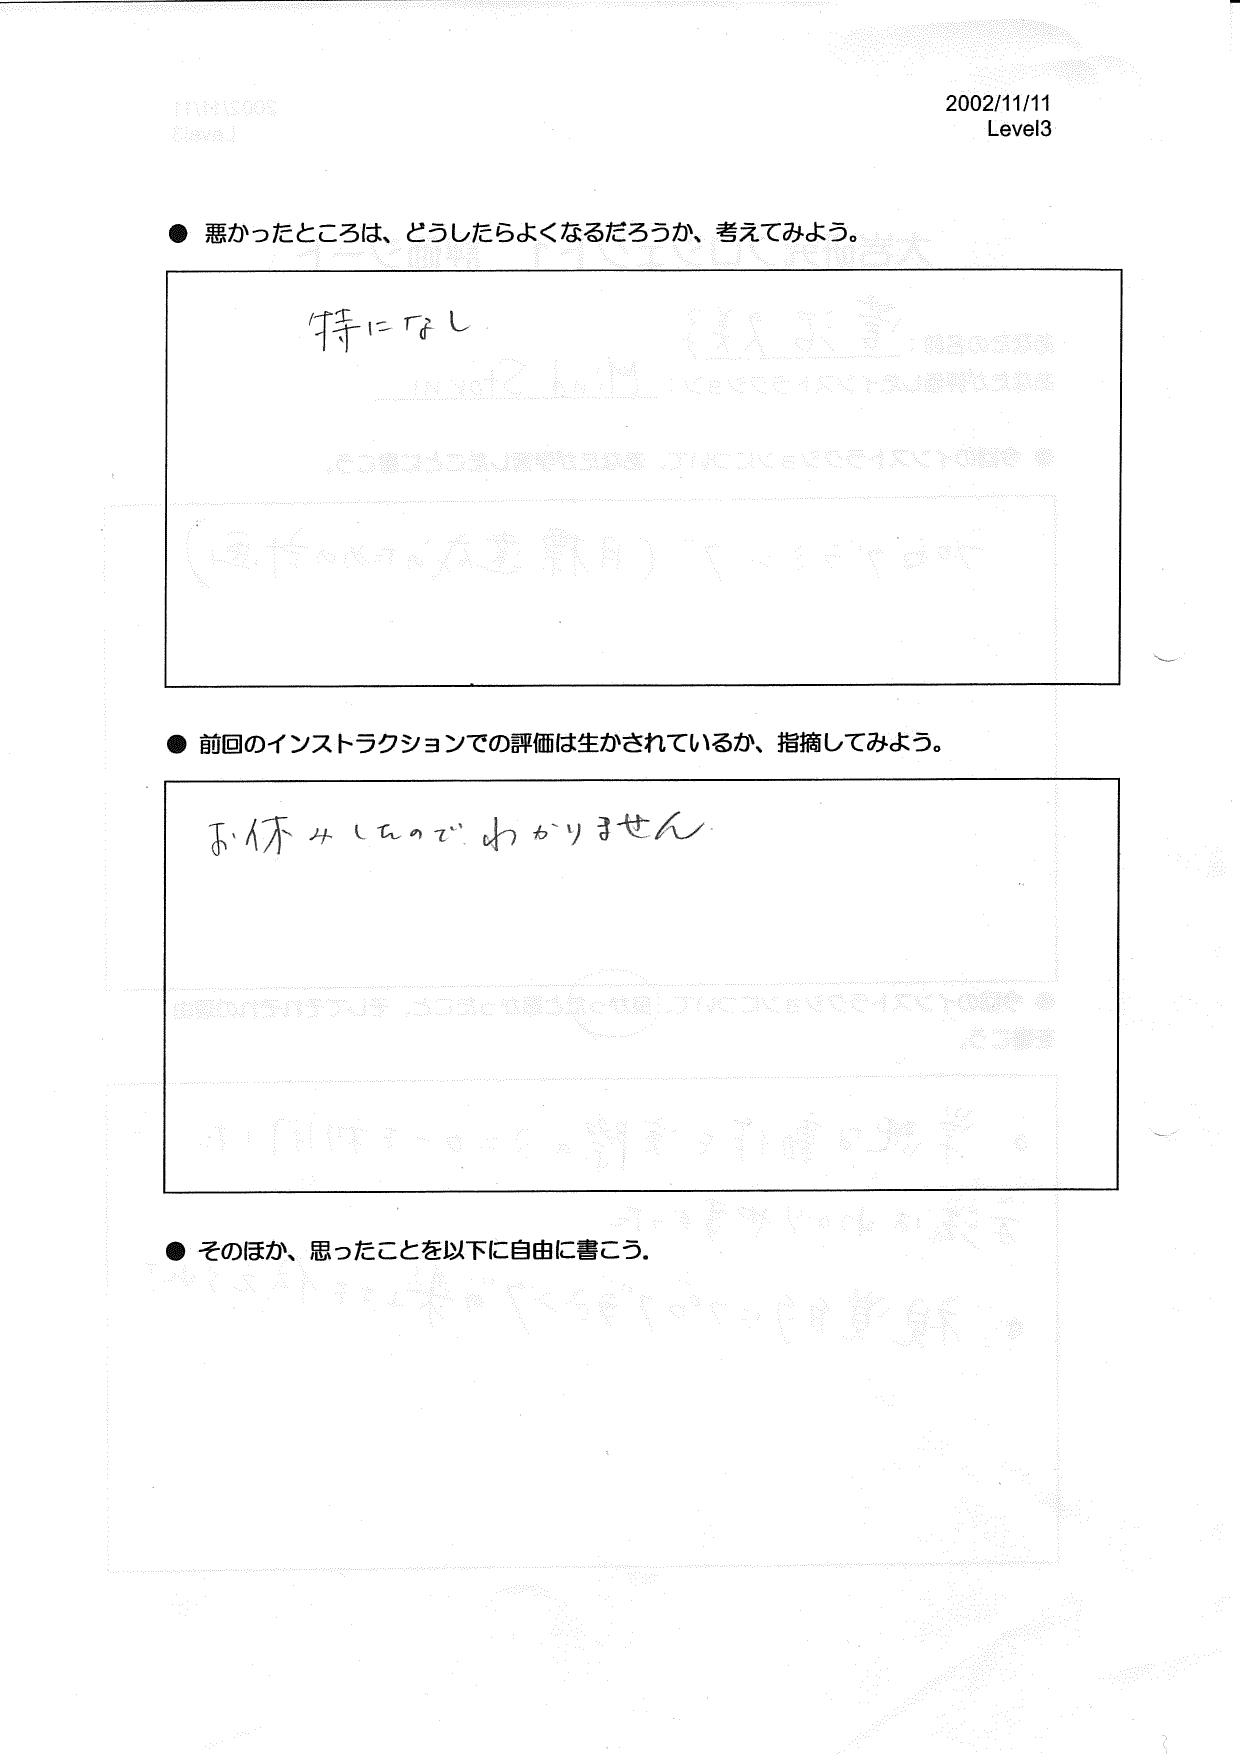 2002/11/11
Level3
● 悪かったところは、どうしたらよくなるだろうか、考えてみよう。
特になし
● 前回のインストラクションでの評価は生かされているか、指摘してみよう。
お休みしたのでわかりません
● そのほか、思ったことを以下に自由に書こう。